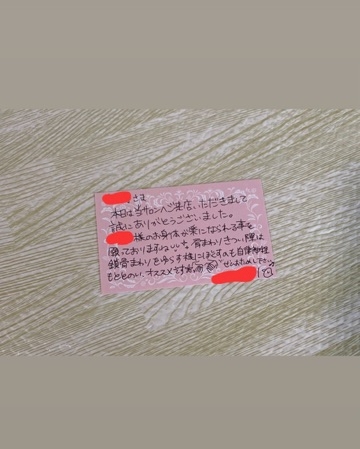 さま
本日は当サロンへご来店いただきまして
誠にありがとうございました。
様のお身体が楽になられる事を
願っております 首まわりきつい際は
鎖骨まわりをゆらす様にほぐすのも自律神経
もととのい、オススメです